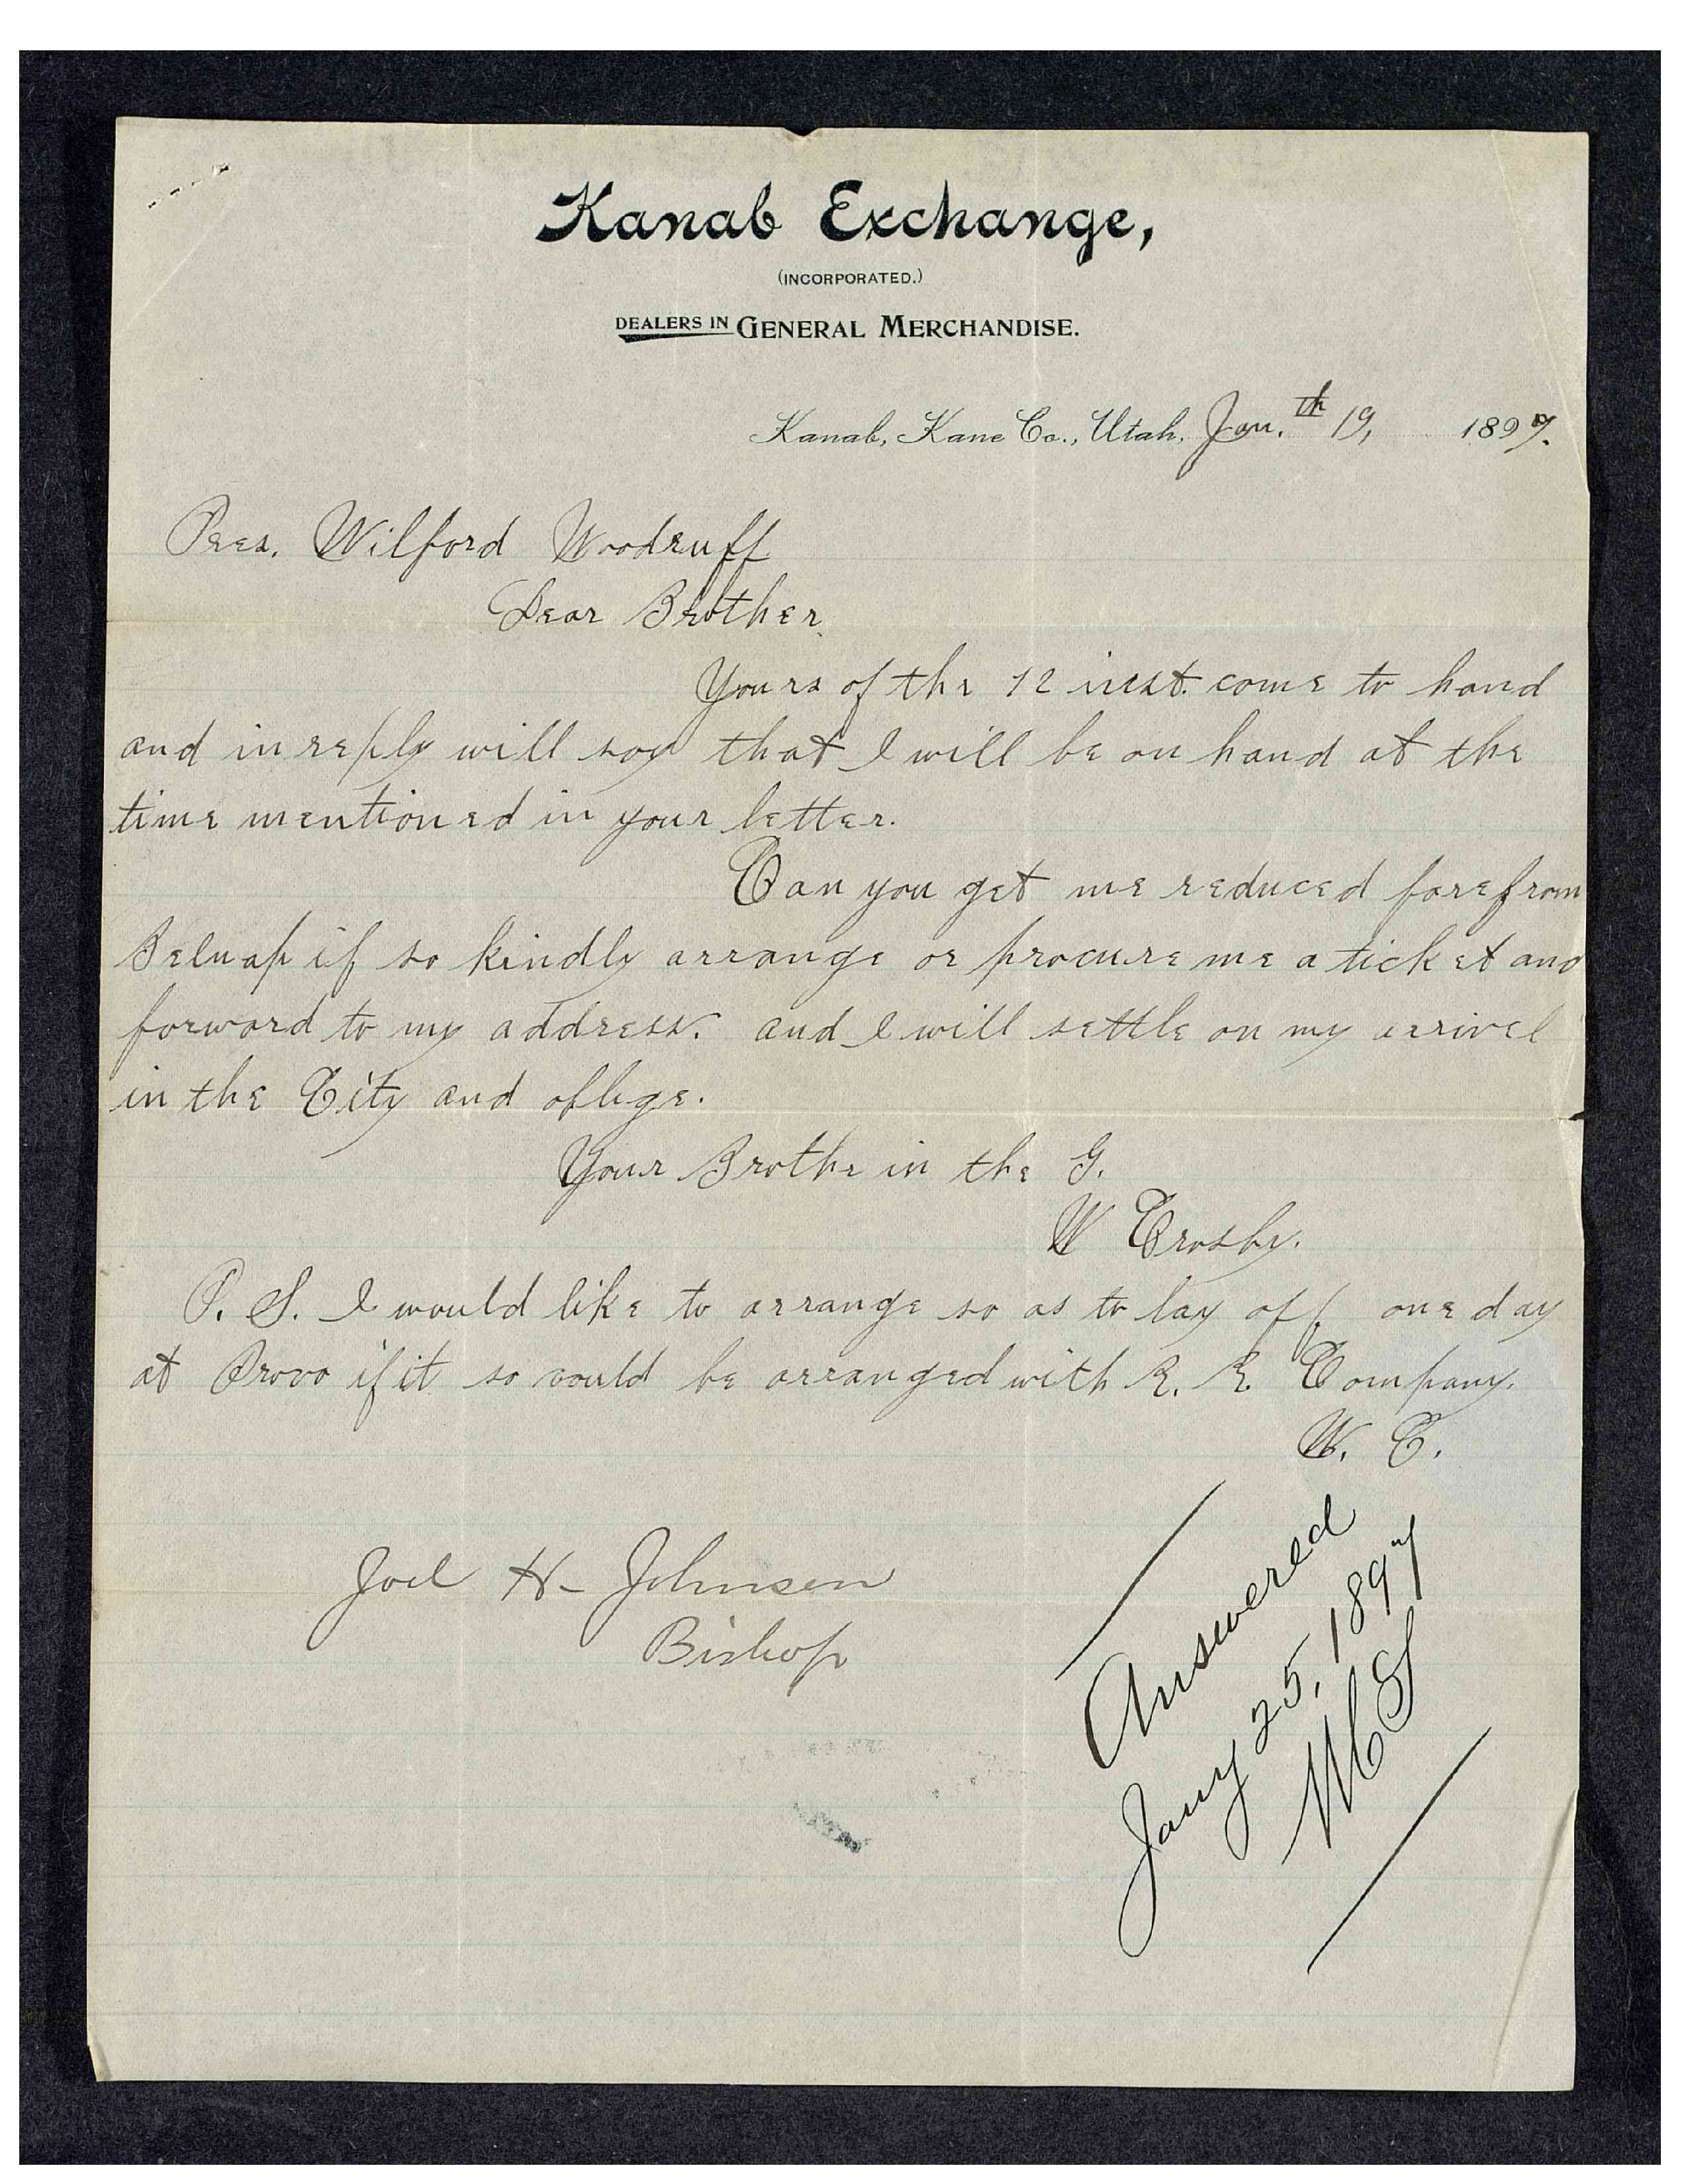 Kanab Exchange,
(INCORPORATED.)
DEALERS IN GENERAL MERCHANDISE.
Kanab, Kane Co., Utah, Jan. th 19, 1897.
Pres. Wilford Woodruff
Dear Brother
Yours of the 12 inst. come to hand
and in reply will say that I will be on hand at the
time mentioned in your letter.
Can you get me reduced fare from
Belnap if so kindly arrange or procure me a ticket and
forward to my address. and I will settle on my arrivel
in the City and oblige.
Your Brothe in the G.
W Crosby.
P. S. I would like to arrange so as to lay off one day
at Provo if it so could be arranged with R. R. Company.
W. C.
Joel H- Johnson
Bishop
Answered
Jany 25, 1897